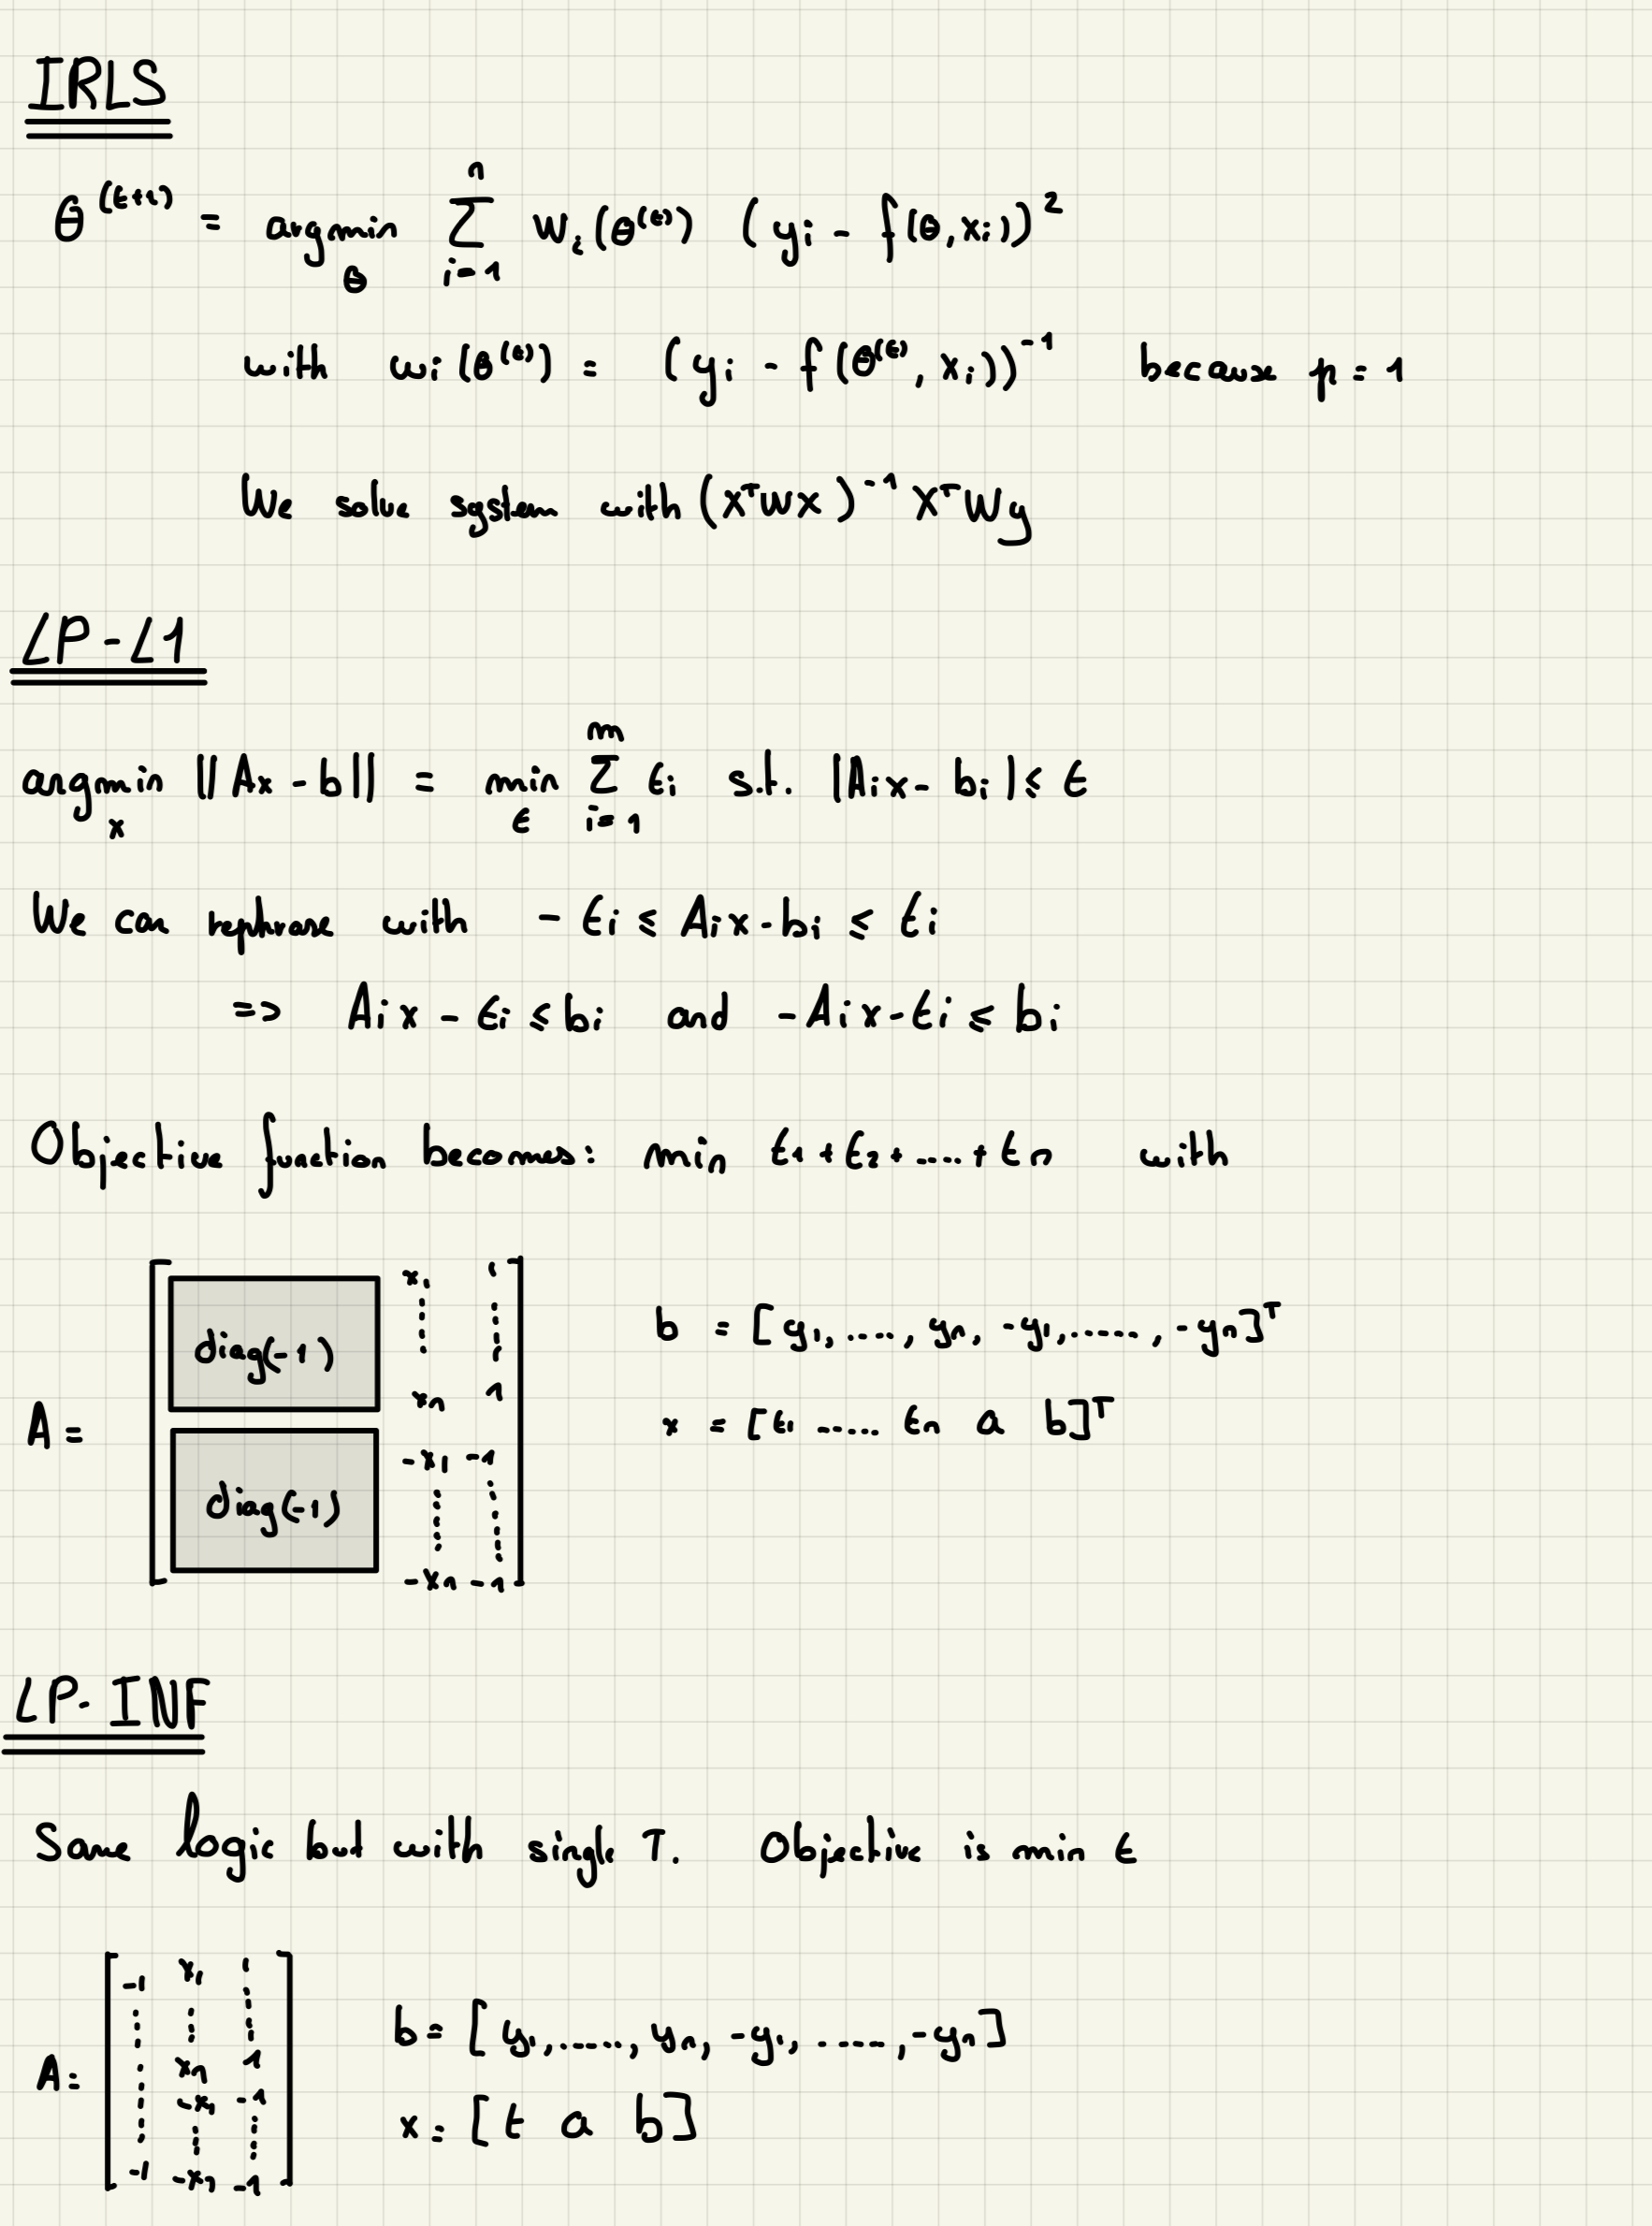 IRLS
θ^(t+1) = argmin_θ ∑_{i=1}^{n} w_i(θ^(t)) (y_i - f(θ, x_i))^2
with w_i(θ^(t)) = (y_i - f(θ^(t), x_i))^-1 because p = 1
We solve system with (X^T W X)^-1 X^T W y
LP-L1
argmin_x ||Ax - b|| = min_t ∑_{i=1}^{m} t_i s.t. |A_i x - b_i| ≤ t
We can rephrase with - t_i ≤ A_i x - b_i ≤ t_i
=> A_i x - t_i ≤ b_i and -A_i x - t_i ≤ b_i
Objective function becomes: min t_1 + t_2 + .... + t_n with
A = [ diag(-1) x_1 1
⋮ ⋮
x_n 1
diag(-1) -x_1 -1
⋮ ⋮
-x_n -1 ]
b = [y_1, ...., y_n, -y_1, ....., -y_n]^T
x = [t_1 ..... t_n a b]^T
LP-INF
Same logic but with single T. Objective is min t
A = [ -1 x_1 1
⋮ ⋮ ⋮
x_n 1
-x_1 -1
⋮ ⋮ ⋮
-1 -x_n -1 ]
b = [y_1, ....., y_n, -y_1, ....., -y_n]
x = [t a b]